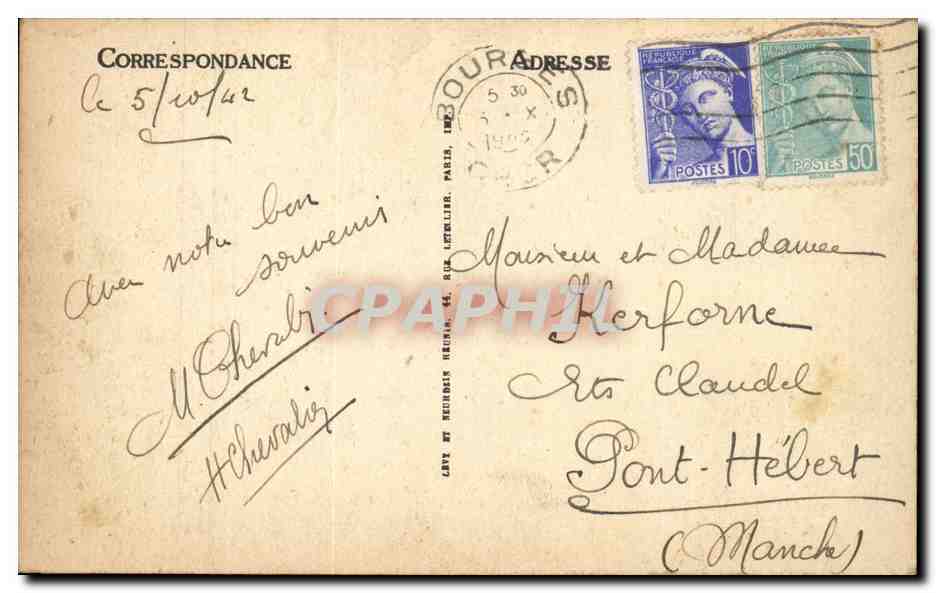 CORRESPONDANCE
le 5/10/42
avec notre bon
souvenir
M. Chevalier
H Chevalier
LÉVY ET NEURDEIN RÉUNIS, 44, RUE LETELLIER, PARIS, IMP.
ADRESSE
BOURGES
5 30
X
CHER
RÉPUBLIQUE FRANÇAISE
POSTES 10c
RÉPUBLIQUE
POSTES 50c
Monsieur et Madame
Kerforne
Ets Claudel
Pont-Hébert
(Manche)
CPAPHIL